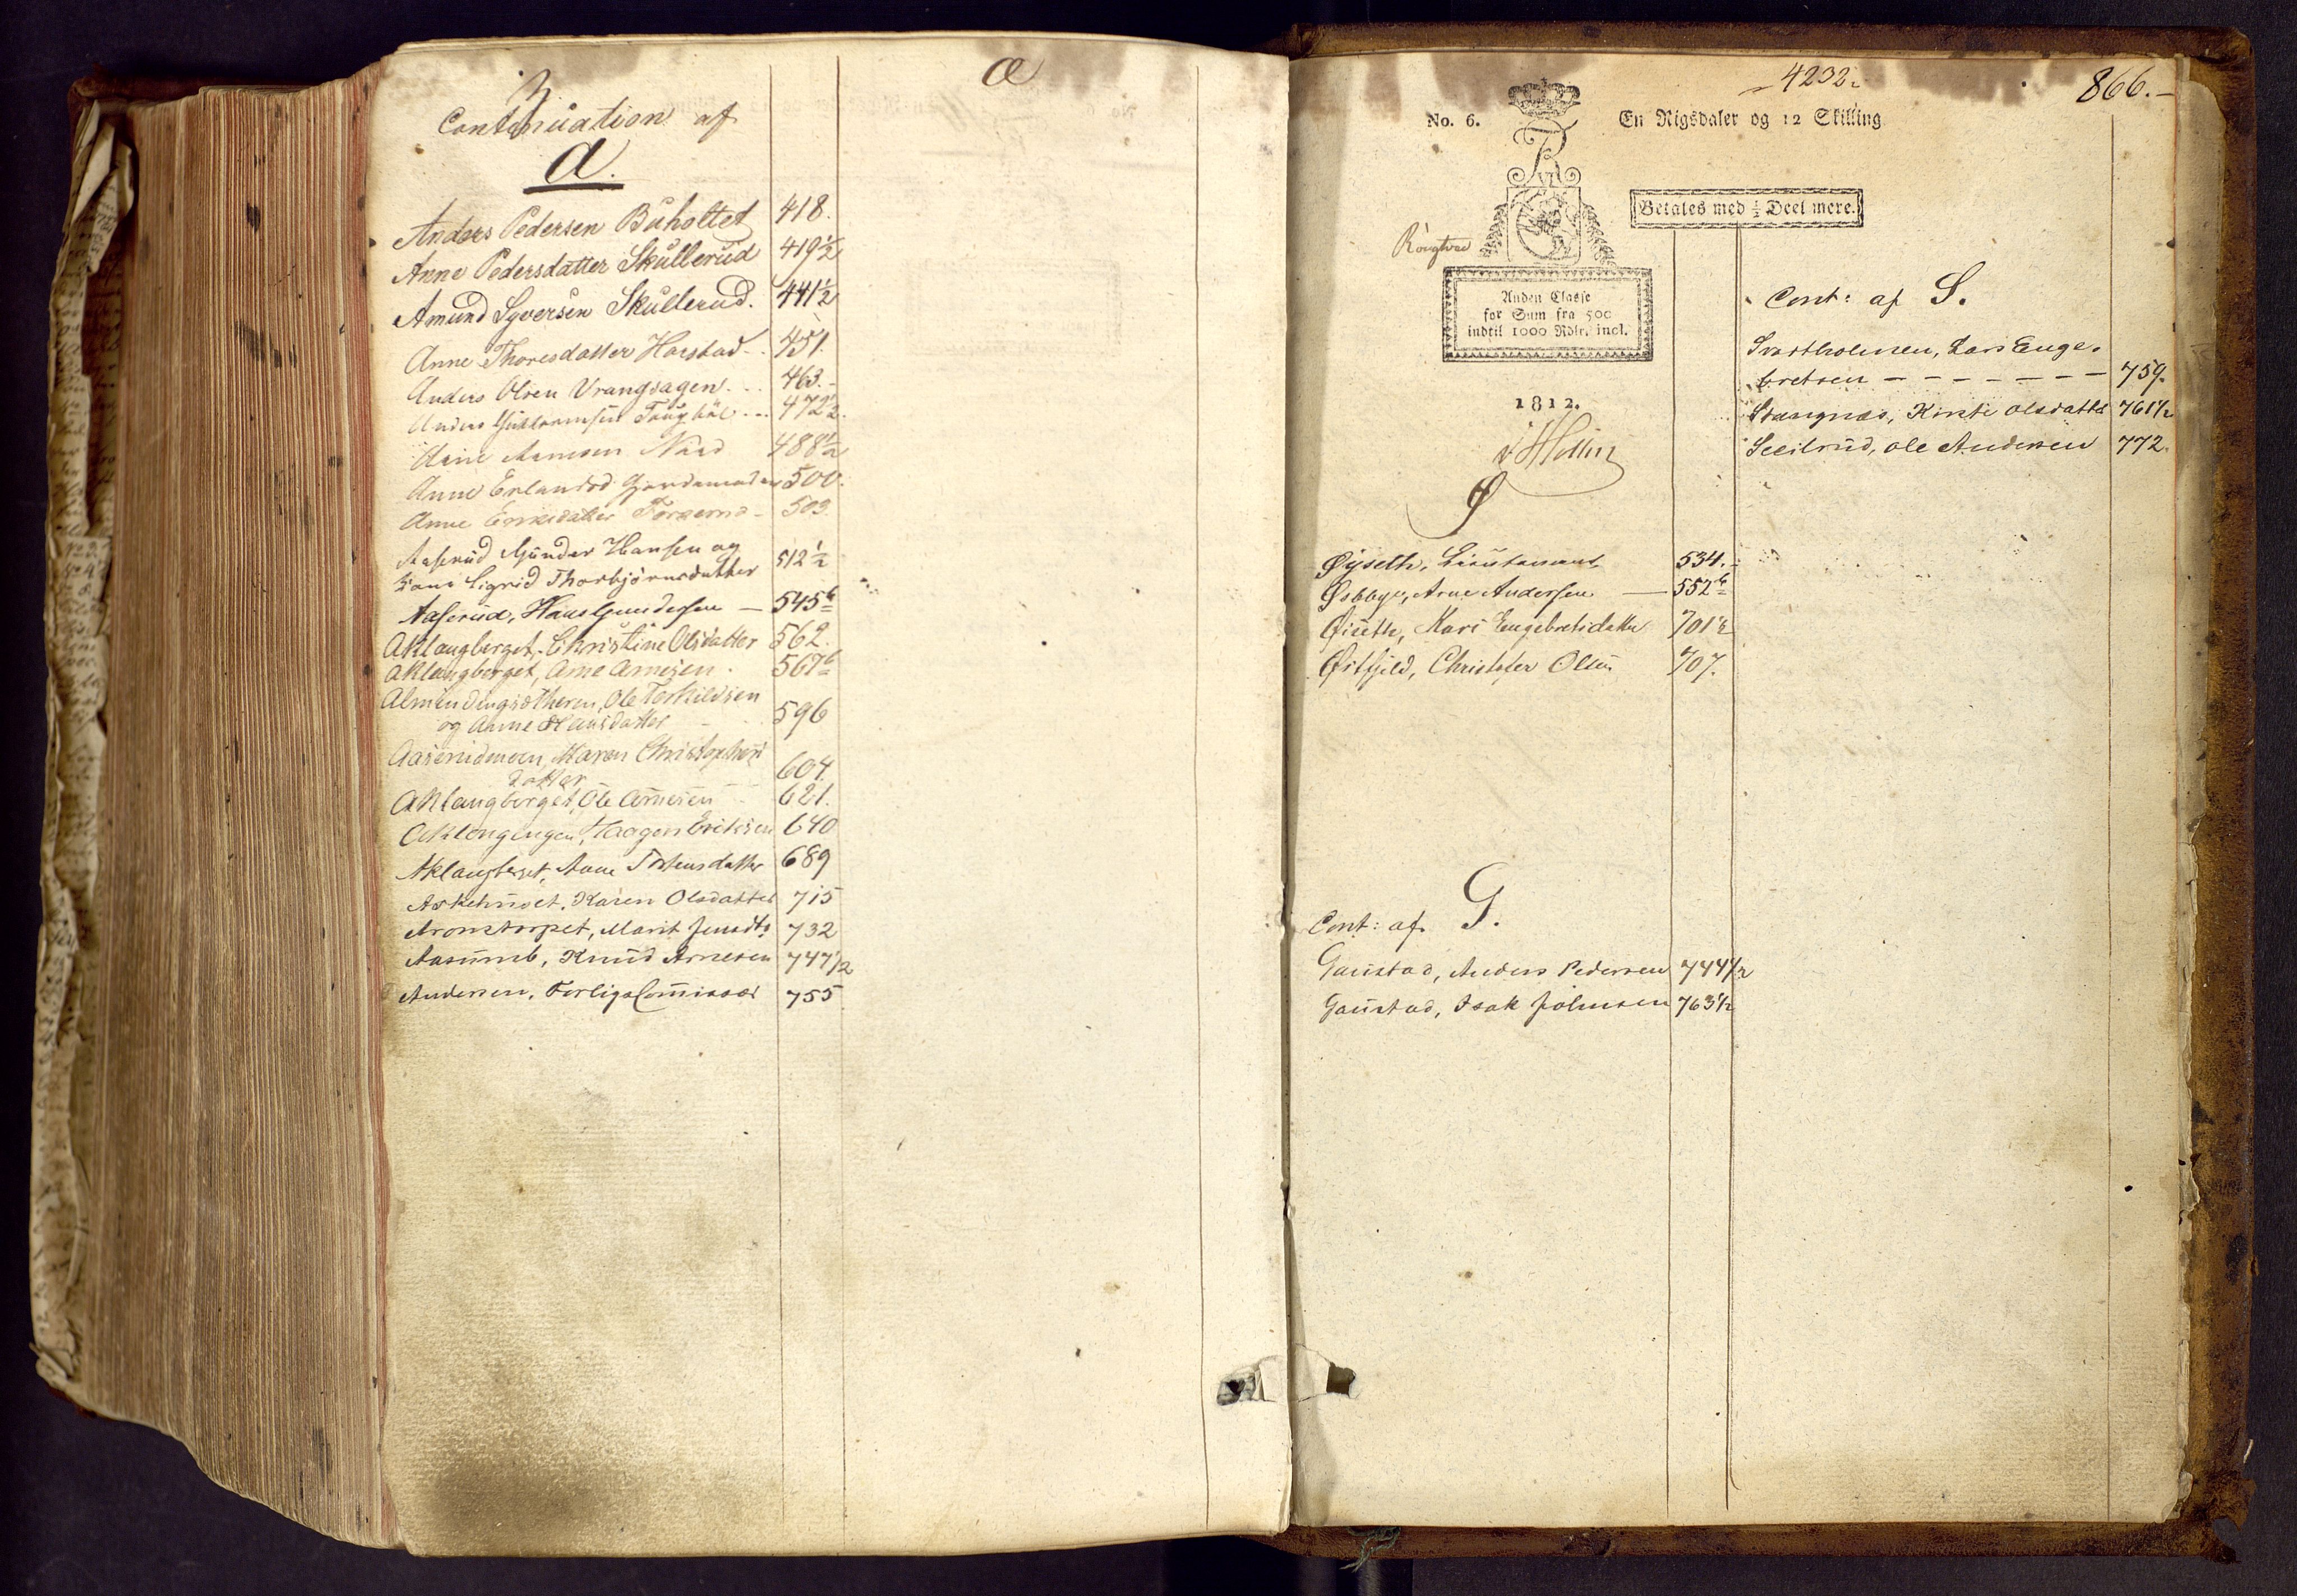 Continuation af
A.
Anders Pedersen Buholtet 418.
Anne Pedersdatter Skullerud 419½
Amund Syversen Skullerud. 441½
Anne Thoresdatter Harstad 451.
Anders Olsen Vrangsagen 463.
Anders Guttormsen 472½.
Arne Arnesen 488½
Anne Erlandsd 500.
Anne 503.
Aaserud Gunder Hansen og
Kone Sigrid Thorbjørnsdatter 512½
Aaserud, Hans Gundersen — 545b
Aklangberget, Christine Olsdatter 562.
Aklangberget, Arne Arnesen 567b
Almindingsætheren, Ole Torkildsen
og Anne Hansdatter 596
Aaserudmoen, Maren Christophers
datter 604.
Aklangberget, Ole Arnesen 621.
Aklangengen, Haagen Eriksen 640
Aklangberget, Anne Tostensdatter 689
Askehuset, Karen Olsdatter 715
Aronstorpet, Marit Jensdtr 732
Aasumb, Knud Arnesen 747½
Andersen, Forligs Commissær 755
Æ
4232.
866.
No. 6.
En Rigsdaler og 12 Skilling
Betales med ½ Deel mere.
FR VI
Anden Classe
for Sum fra 500
indtil 1000 Rdlr. incl.
1812.
Ø
Øyseth, Lieutenant 534.
Østbye, Arne Andersen — 552b
Øiseth, Kari Engebretsdatter 701½
Østfjeld, Christofer Olsen 707.
Cont: af G.
Gaustad, Anders Pedersen 744½
Gaustad, Isak Johnsen 763½
Cont: af S.
Svartholmen, Lars Enge-
bretsen — — — — — — — 759.
Stangnæs, Kirsti Olsdatter 761½
Ole Andersen 772.